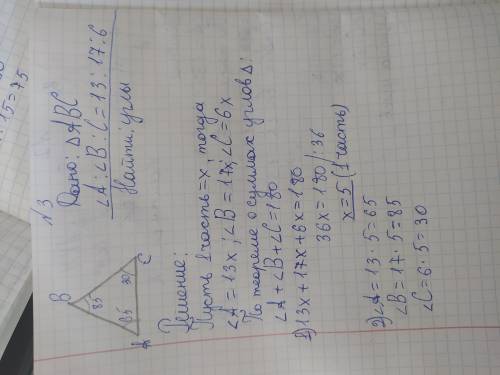 15=75
№3
Дано: △ABC
∠A:∠B:∠C=13:17:6
Найти: углы
B
85
65
30
A
C
Решение:
Пусть 1 часть=x, тогда
∠A=13x; ∠B=17x; ∠C=6x
По теореме о суммах углов △:
∠A+∠B+∠C=180
1) 13x+17x+6x=180
36x=180/:36
x=5 (1 часть)
2) ∠A=13·5=65
∠B=17·5=85
∠C=6·5=30